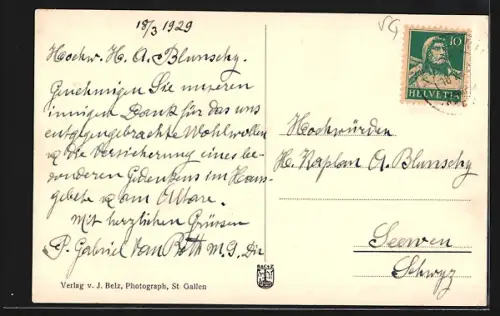 18/3 1929
SG
Hochw. H. A. Blunschy.
Genehmigen Sie unseren
innigen Dank für das uns
entgegengebrachte Wohlwollen
& die Versicherung eines be-
sonderen Gedenkens im Haus-
gebete & am Altare.
Mit herzlichen Grüssen
P. Gabriel Van Roth M. S. Dir
Verlag v. J. Belz, Photograph, St Gallen
10
HELVETIA
Hochwürden
H. Kaplan A. Blunschy
Seewen
Schwyz